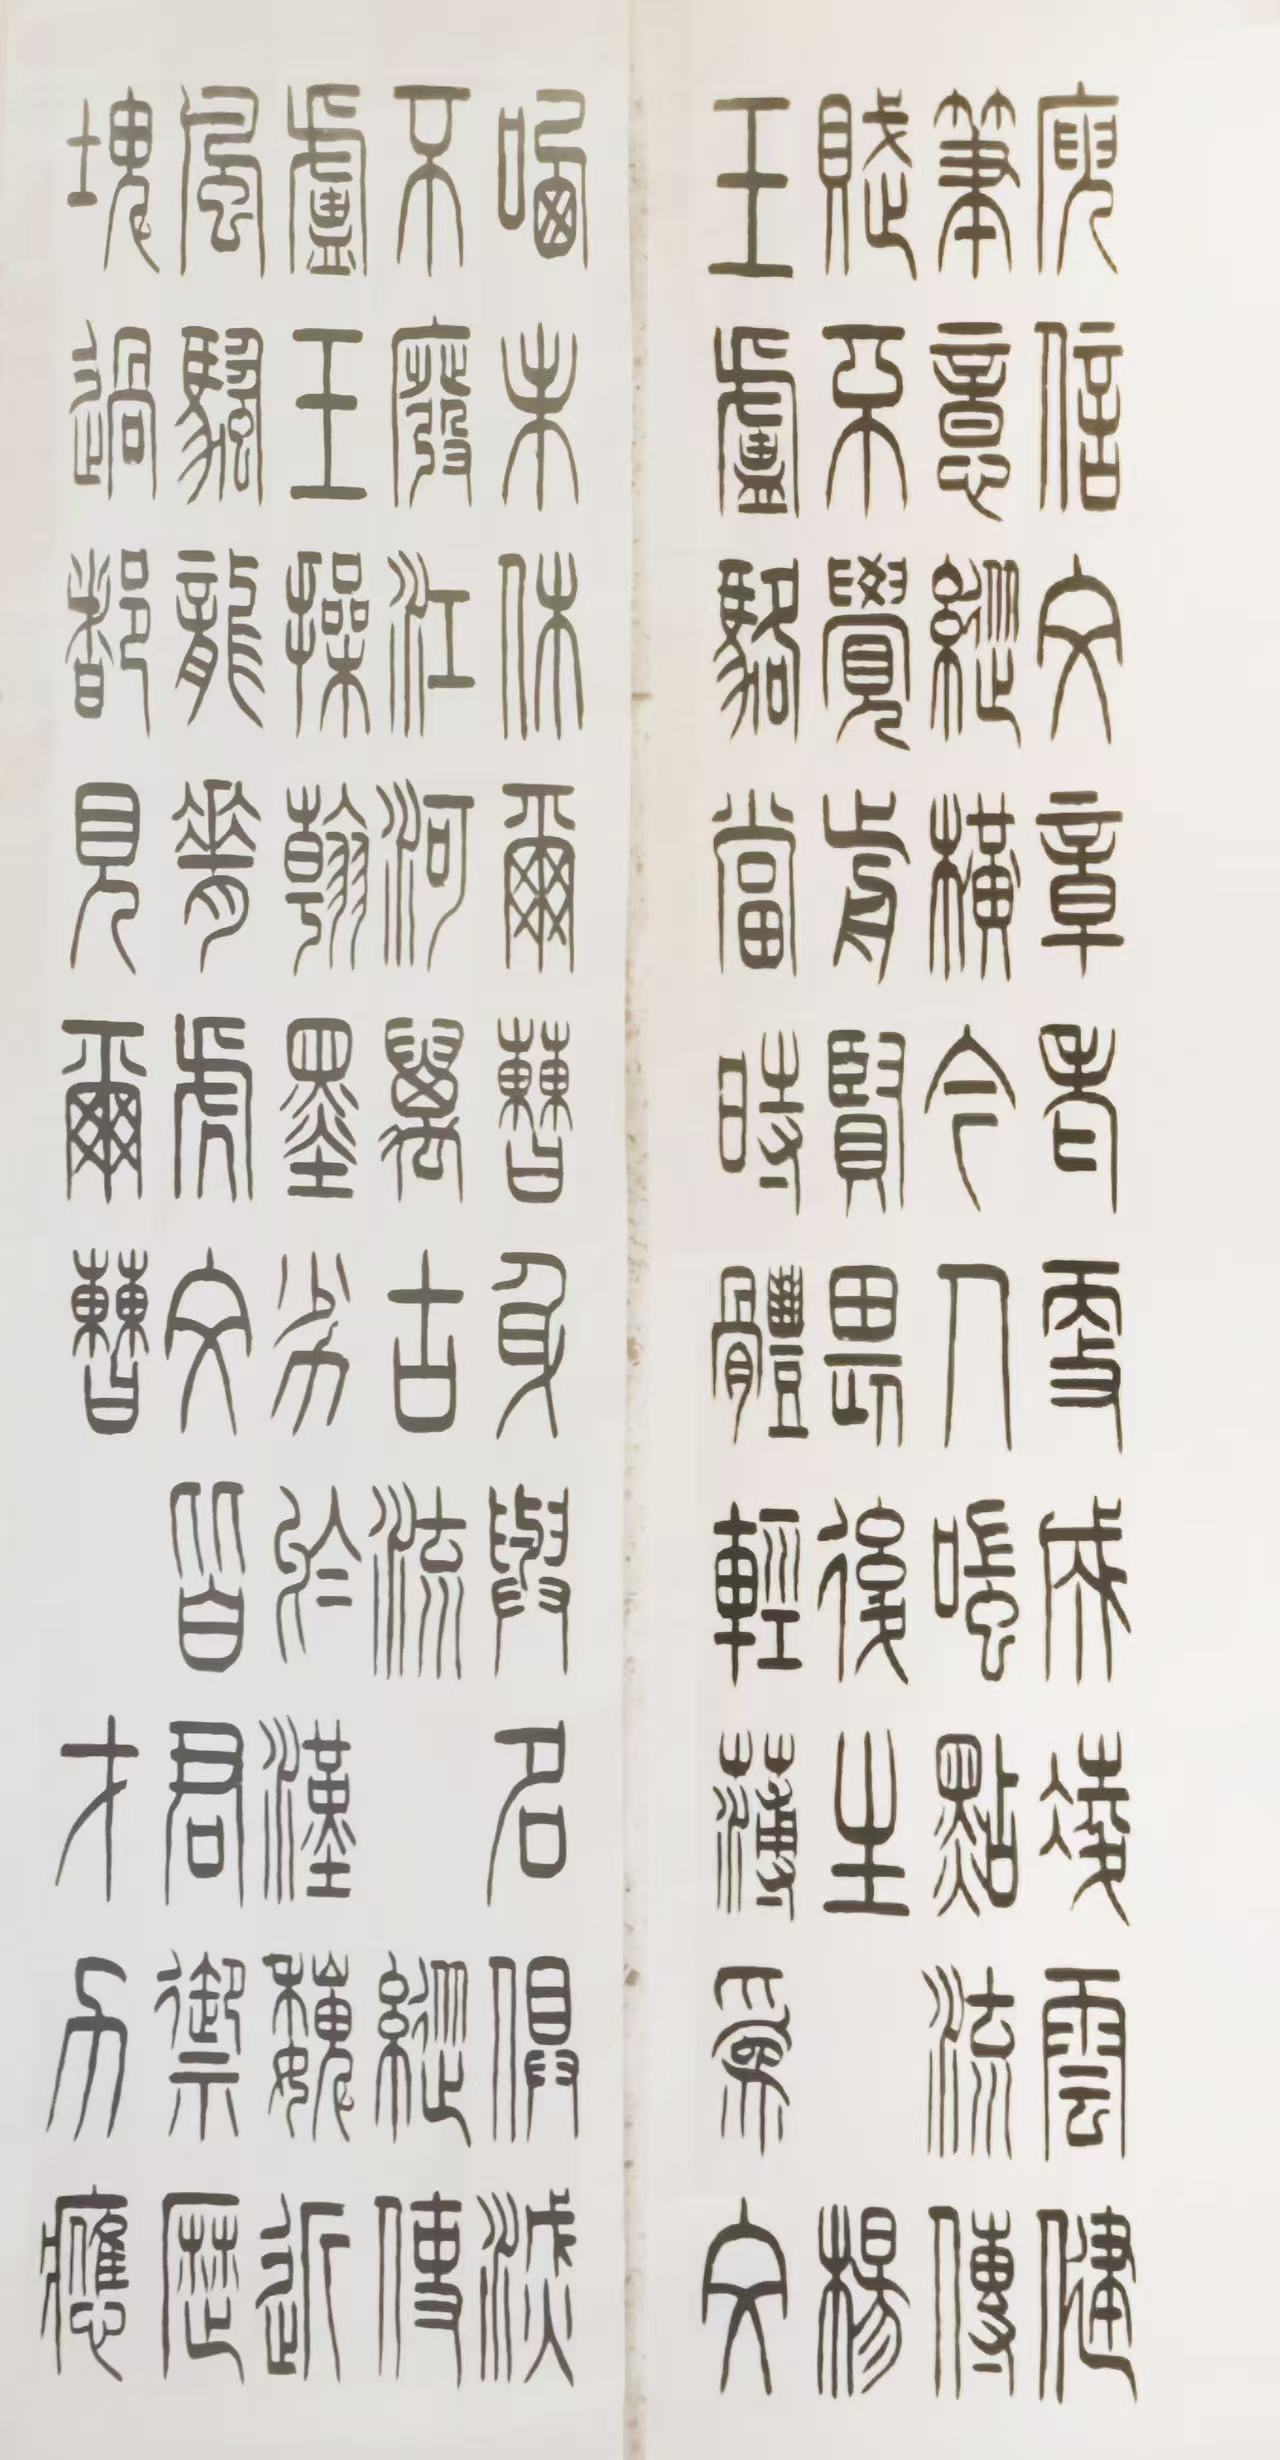 庾信文章老更成凌雲健
筆意縱橫今人嗤點流傳
賦不覺前賢畏後生 楊
王盧駱當時體輕薄爲文
哂未休爾曹身與名俱滅
不廢江河萬古流 縱使
盧王操翰墨劣於漢魏近
風騷龍脊虎文皆君禦歷
塊過都見爾曹 才力應